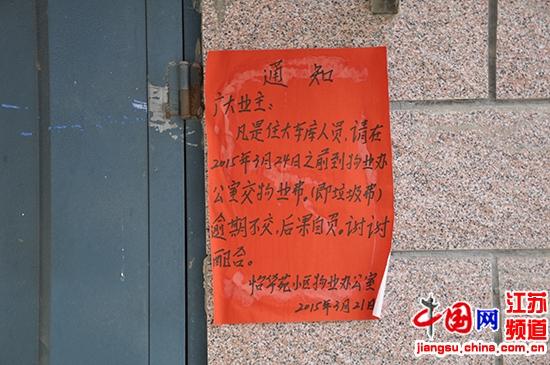 通知
广大业主:
凡是住大车库人员,请在
2015年3月24日之前到物业办
公室交物业费。(即垃圾费)
逾期不交,后果自负。谢谢
配合。
怡华苑小区物业办公室
2015年3月21日
中国网
江苏
频道
jiangsu.china.com.cn